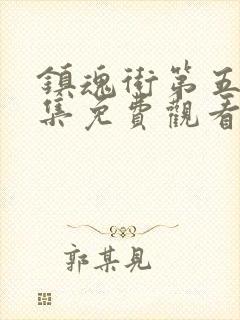 鎮魂街第五
集免費觀看
郭某見